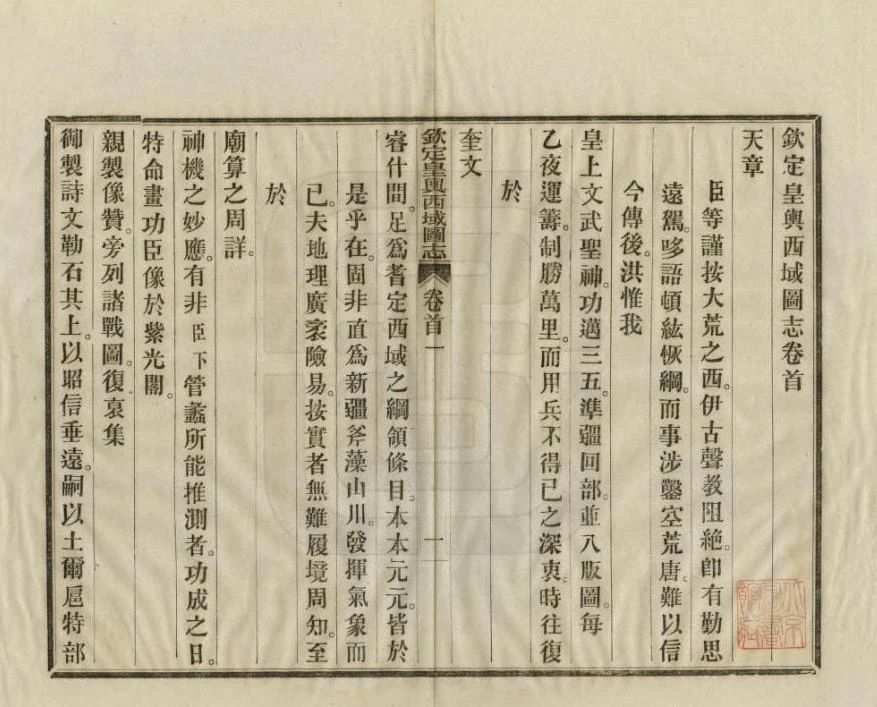 欽定皇輿西域圖志卷首
天章
臣等謹按大荒之西。伊古聲教阻絶。卽有勤思
遠駕。哆語頓紘恢綱。而事涉鑿空荒唐。難以信
今傳後。洪惟我
皇上文武聖神。功邁三五。準疆回部。並入版圖。每
乙夜運籌。制勝萬里。而用兵不得已之深衷。時往復
於
奎文
欽定皇輿西域圖志 卷首一 一
睿什間。足爲耆定西域之綱領條目。本本元元。皆於
是乎在。固非直爲新疆斧藻山川。發揮氣象而
已。夫地理廣袤險易。按實者無難履境周知。至
於
廟算之周詳。
神機之妙應。有非臣下管蠡所能推測者。功成之日。
特命畫功臣像於紫光閣。
親製像贊。旁列諸戰圖。復裒集
御製詩文勒石其上。以昭信垂遠。嗣以土爾扈特部